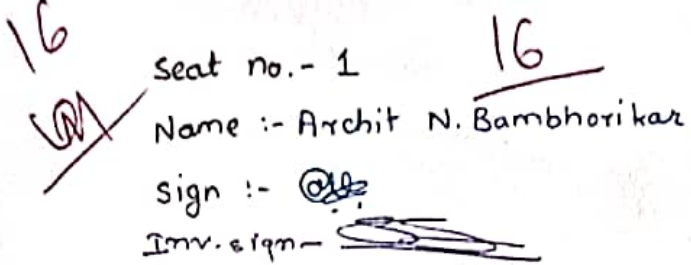 16
16
Seat no. - 1
Name :- Archit N. Bambhorikar
Sign :-
Inv. sign -